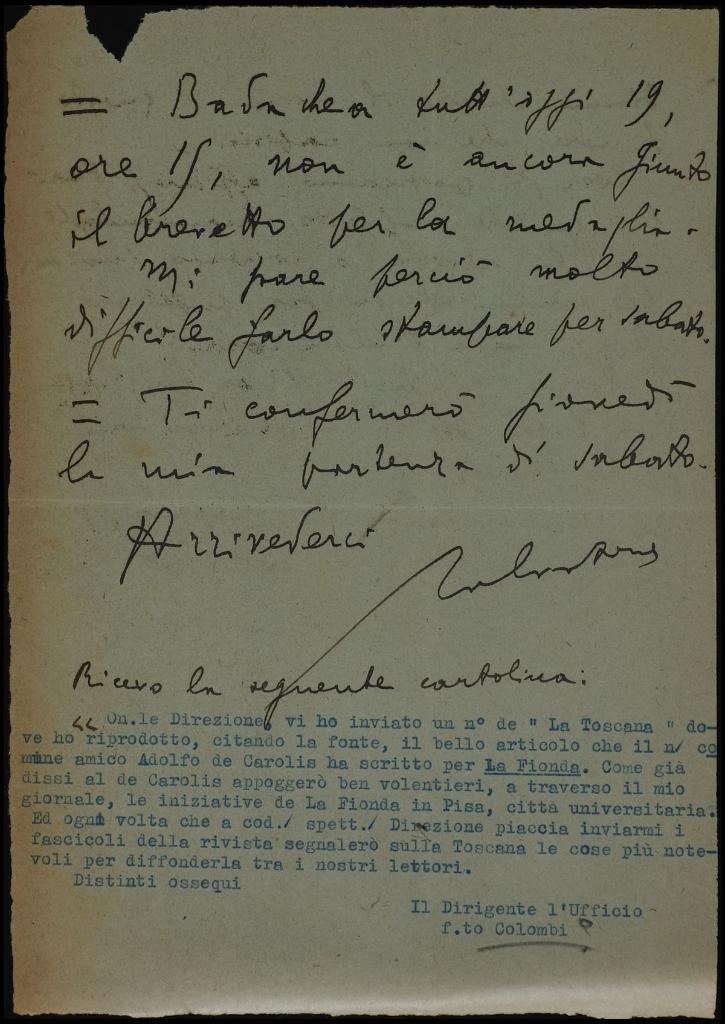 = Bada che a tutt'oggi 19,
ore 15, non è ancora giunto
il brevetto per la medaglia.
Mi pare perciò molto
difficile farlo stampare per sabato.
= Ti confermerò giovedì
la mia partenza di sabato.
Arrivederci
Ricevo la seguente cartolina:
"On.le Direzione, vi ho inviato un n° de " La Toscana " do-
ve ho riprodotto, citando la fonte, il bello articolo che il n/ co
mune amico Adolfo de Carolis ha scritto per La Fionda. Come già
dissi al de Carolis appoggerò ben volentieri, a traverso il mio
giornale, le iniziative de La Fionda in Pisa, città universitaria.
Ed ogni volta che a cod./ spett./ Direzione piaccia inviarmi i
fascicoli della rivista segnalerò sulla Toscana le cose più note-
voli per diffonderla tra i nostri lettori.
Distinti ossequi
Il Dirigente l'Ufficio
f.to Colombi